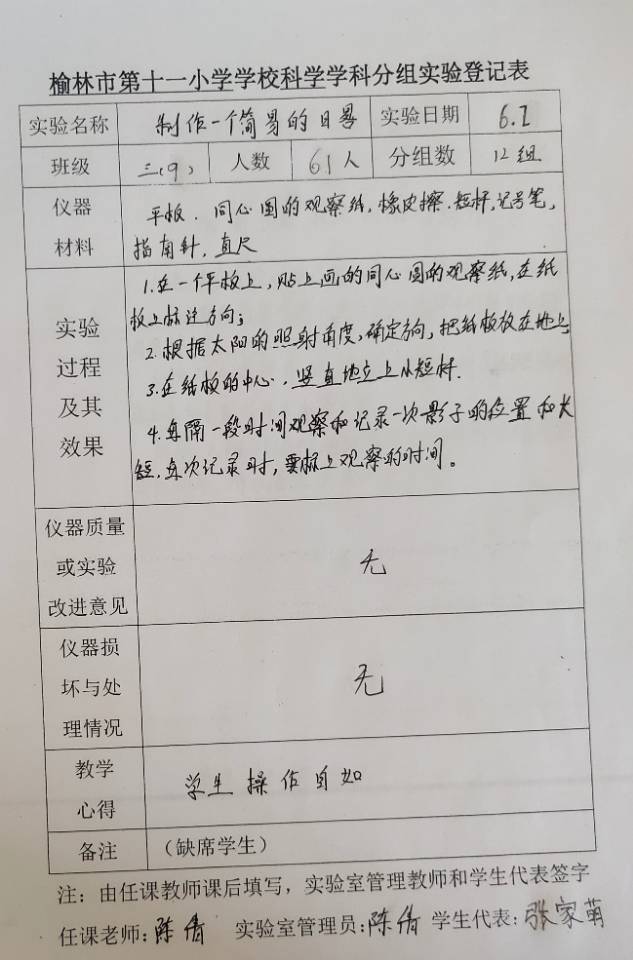 榆林市第十一小学学校科学学科分组实验登记表
实验名称 制作一个简易的日晷 实验日期 6.2
班级 三(9) 人数 61人 分组数 12组
仪器 平板、同心圆的观察纸,橡皮擦.短杆,记号笔,
材料 指南针,直尺
1.在一个平板上,贴上画的同心圆的观察纸,在纸
板上标注方向;
实验 2.根据太阳的照射角度,确定方向,把纸板放在地上
过程 3.在纸板的中心,竖直地立上小短杆.
及其 4.每隔一段时间观察和记录一次影子的位置和长
效果 短,每次记录时,要标上观察的时间。
仪器质量
或实验 无
改进意见
仪器损
坏与处 无
理情况
教学 学生操作自如
心得
备注 (缺席学生)
注:由任课教师课后填写,实验室管理教师和学生代表签字
任课老师:陈倩 实验室管理员:陈倩 学生代表:张家萌